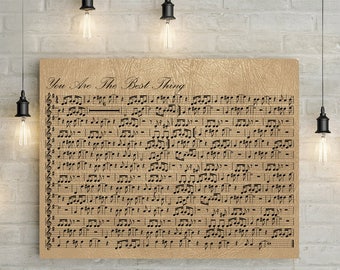 You Are The Best Thing